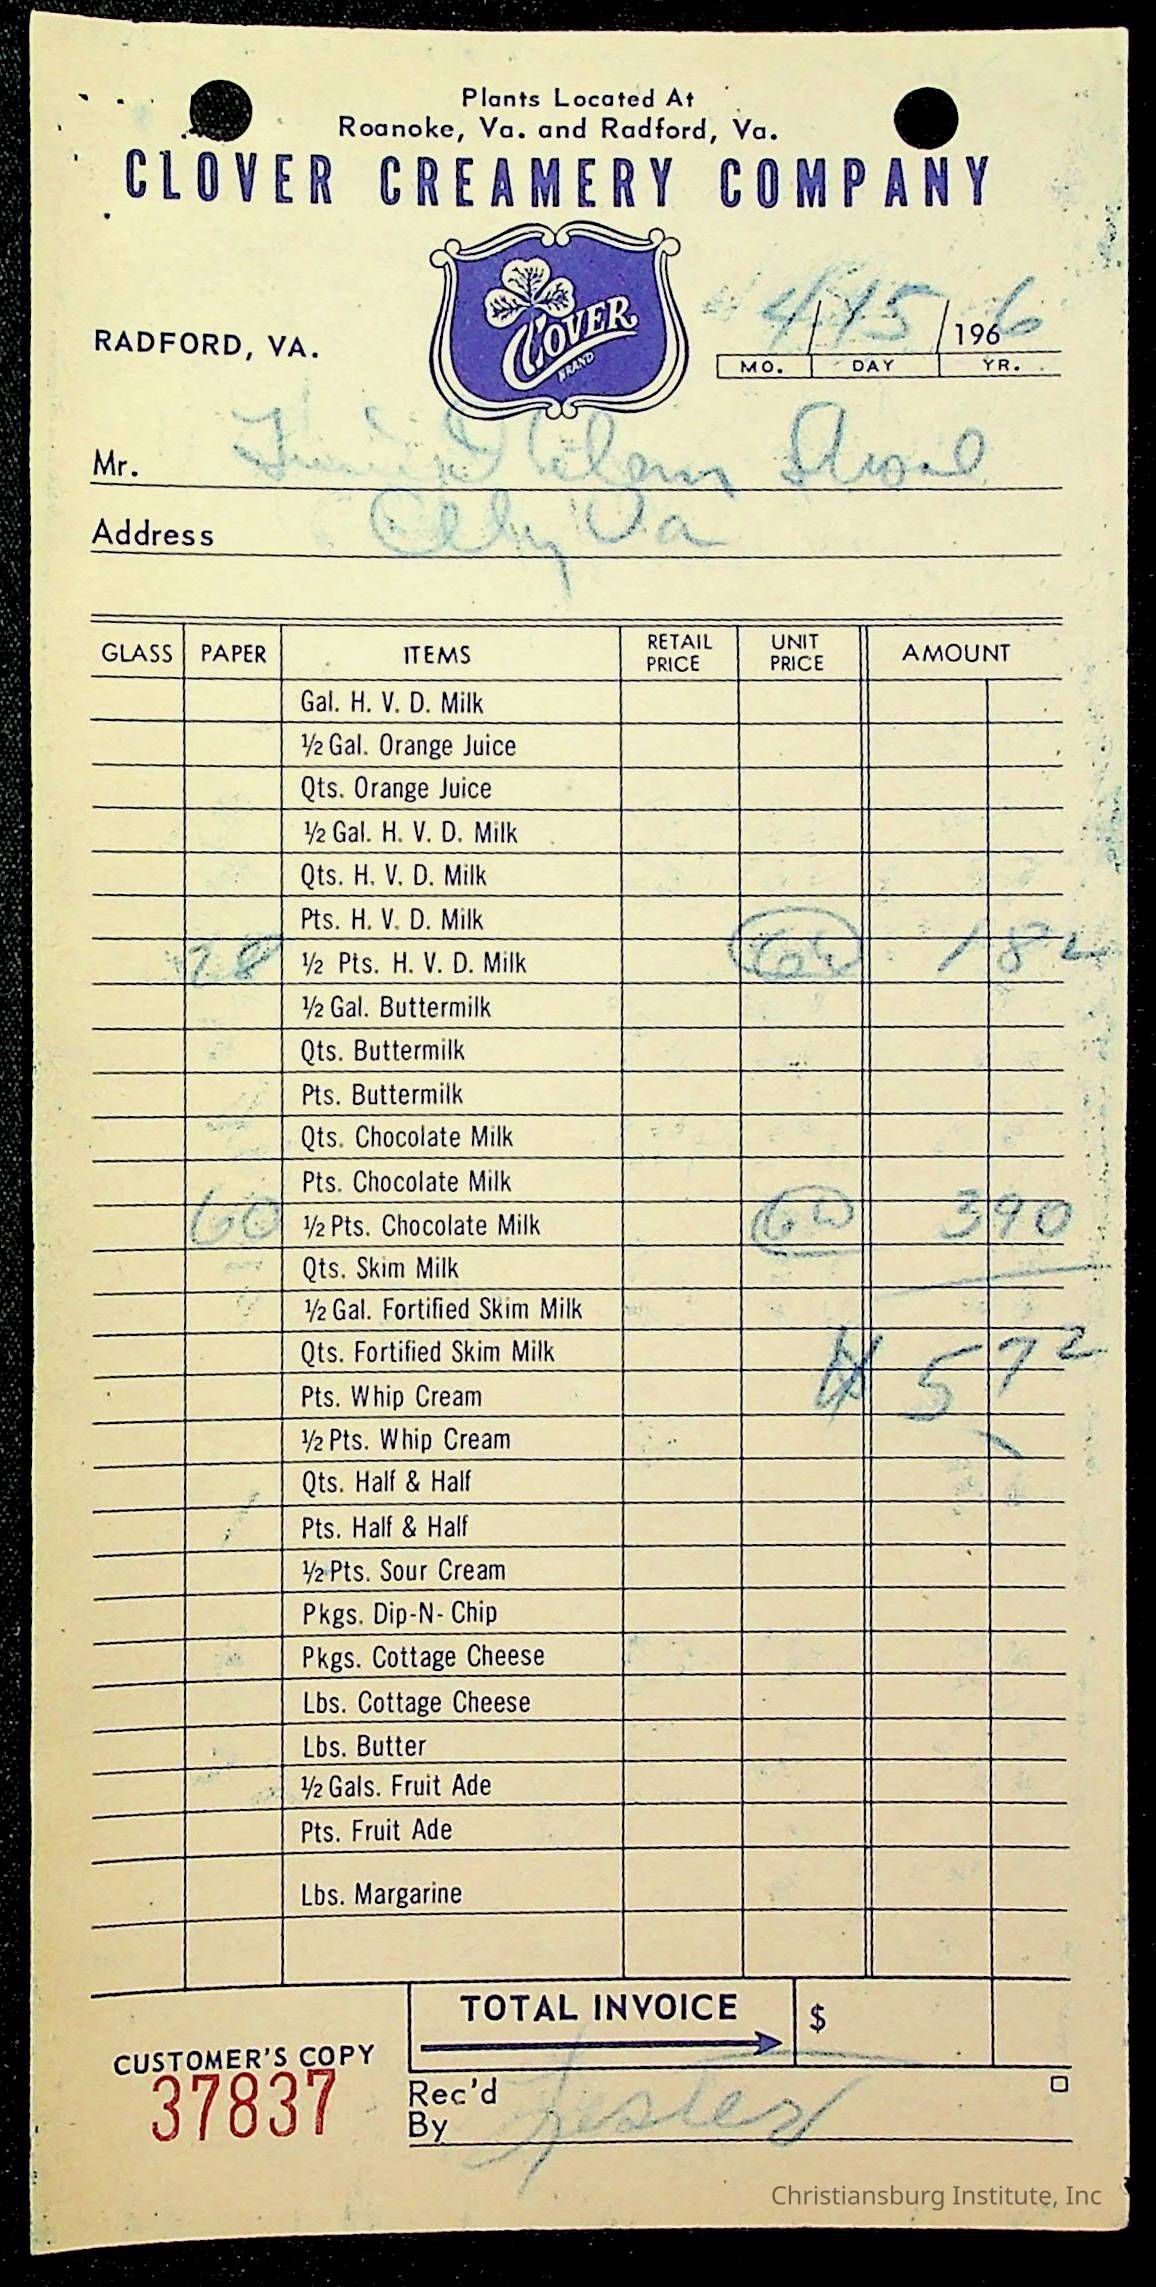 Plants Located At
Roanoke, Va. and Radford, Va.
CLOVER CREAMERY COMPANY
CLOVER
BRAND
RADFORD, VA.
4/15/1966
MO. DAY YR.
Mr.
Address Va
GLASS PAPER ITEMS RETAIL PRICE UNIT PRICE AMOUNT
Gal. H. V. D. Milk
½ Gal. Orange Juice
Qts. Orange Juice
½ Gal. H. V. D. Milk
Qts. H. V. D. Milk
Pts. H. V. D. Milk
28 ½ Pts. H. V. D. Milk 1 82
½ Gal. Buttermilk
Qts. Buttermilk
Pts. Buttermilk
Qts. Chocolate Milk
Pts. Chocolate Milk
60 ½ Pts. Chocolate Milk 3 90
Qts. Skim Milk
½ Gal. Fortified Skim Milk
Qts. Fortified Skim Milk 5 72
Pts. Whip Cream
½ Pts. Whip Cream
Qts. Half & Half
Pts. Half & Half
½ Pts. Sour Cream
Pkgs. Dip-N-Chip
Pkgs. Cottage Cheese
Lbs. Cottage Cheese
Lbs. Butter
½ Gals. Fruit Ade
Pts. Fruit Ade
Lbs. Margarine
TOTAL INVOICE $
CUSTOMER'S COPY
37837
Rec'd
By Lester
Christiansburg Institute, Inc